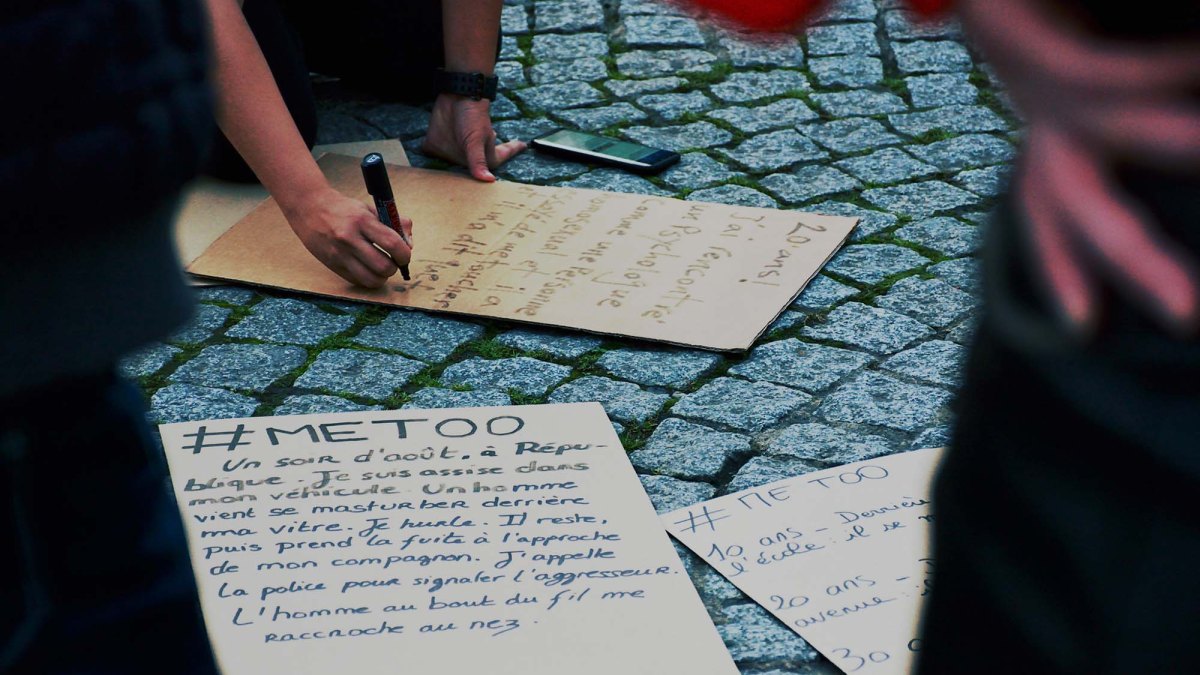 20 ans!
J'ai rencontré
un Psychologue
comme une Personne
il m'a dit que
#METOO
Un soir d'août, à Répu-
blique. Je suis assise dans
mon véhicule. Un homme
vient se masturber derrière
ma vitre. Je hurle. Il reste,
puis prend la fuite à l'approche
de mon compagnon. J'appelle
la police pour signaler l'agresseur.
L'homme au bout du fil me
raccroche au nez.
#METOO
10 ans - Derrière
l'école: il se
20 ans -
avenue:
30